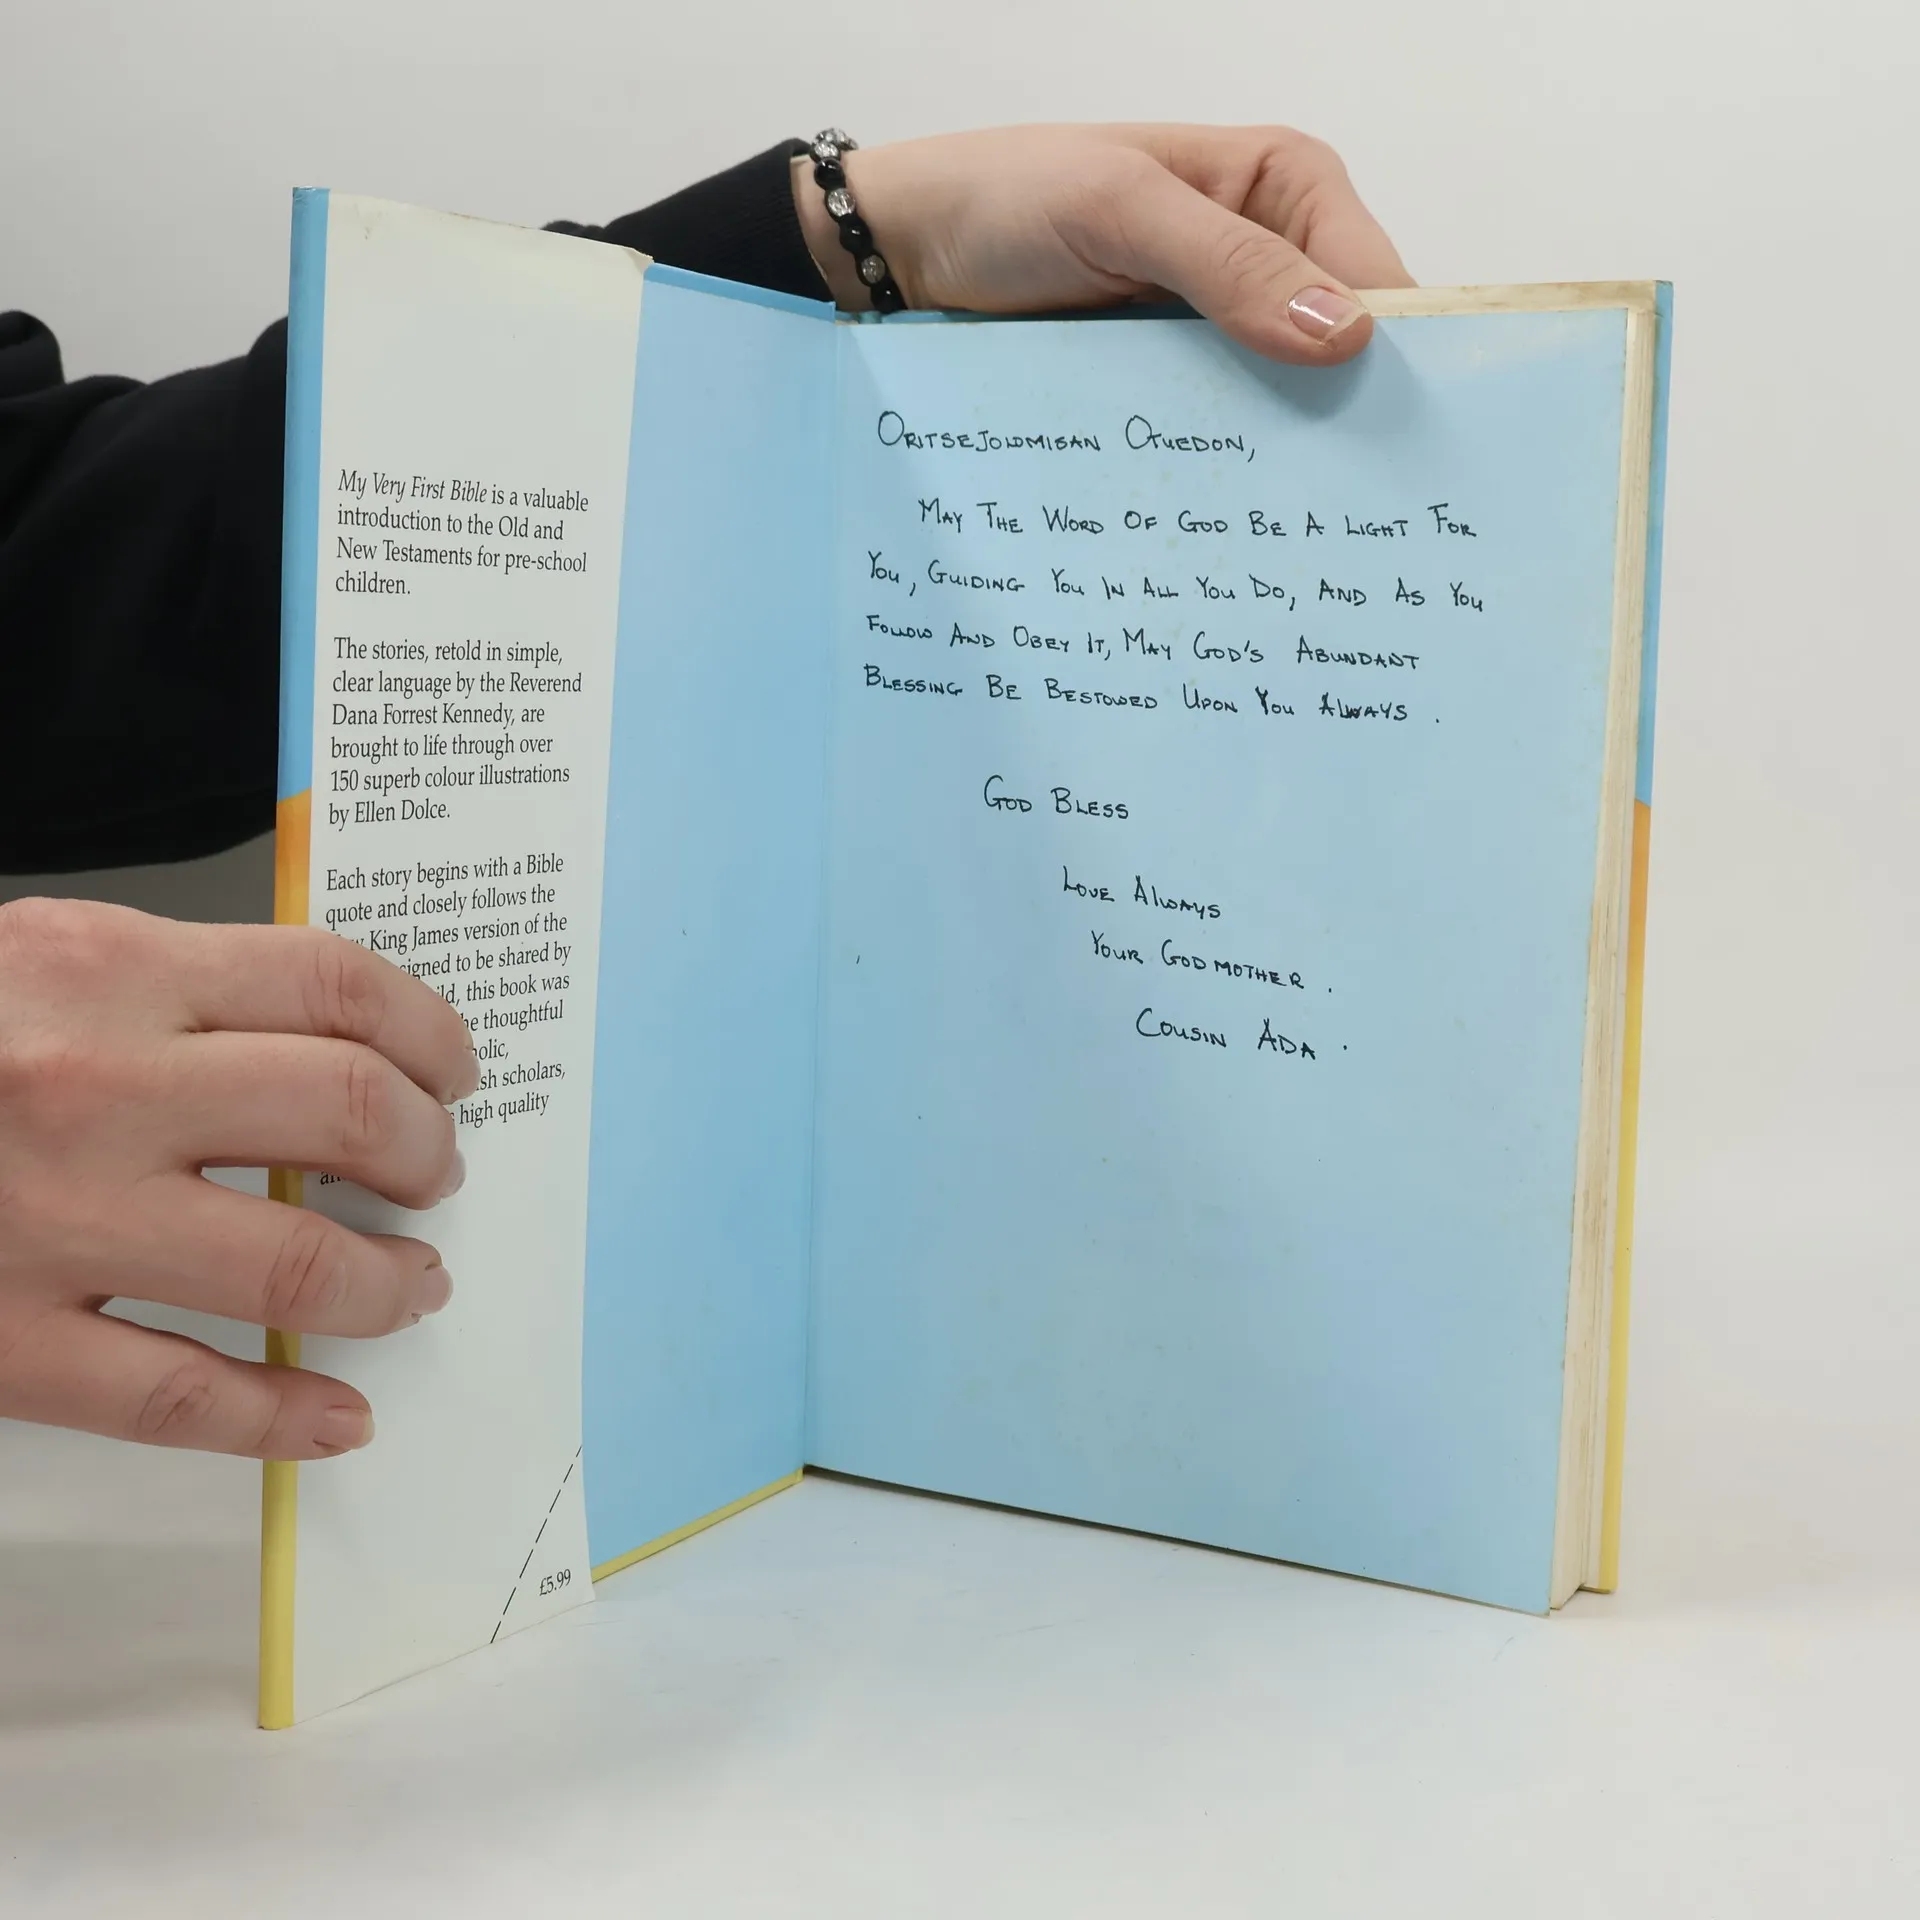 My Very First Bible is a valuable
introduction to the Old and
New Testaments for pre-school
children.
The stories, retold in simple,
clear language by the Reverend
Dana Forrest Kennedy, are
brought to life through over
150 superb colour illustrations
by Ellen Dolce.
Each story begins with a Bible
quote and closely follows the
King James version of the
to be shared by
this book was
thoughtful
scholars,
high quality
£5.99
ORITSEJOLOMISAN OTUEDON,
MAY THE WORD OF GOD BE A LIGHT FOR
YOU, GUIDING YOU IN ALL YOU DO, AND AS YOU
FOLLOW AND OBEY IT, MAY GOD'S ABUNDANT
BLESSING BE BESTOWED UPON YOU ALWAYS.
GOD BLESS
LOVE ALWAYS
YOUR GODMOTHER.
COUSIN ADA.